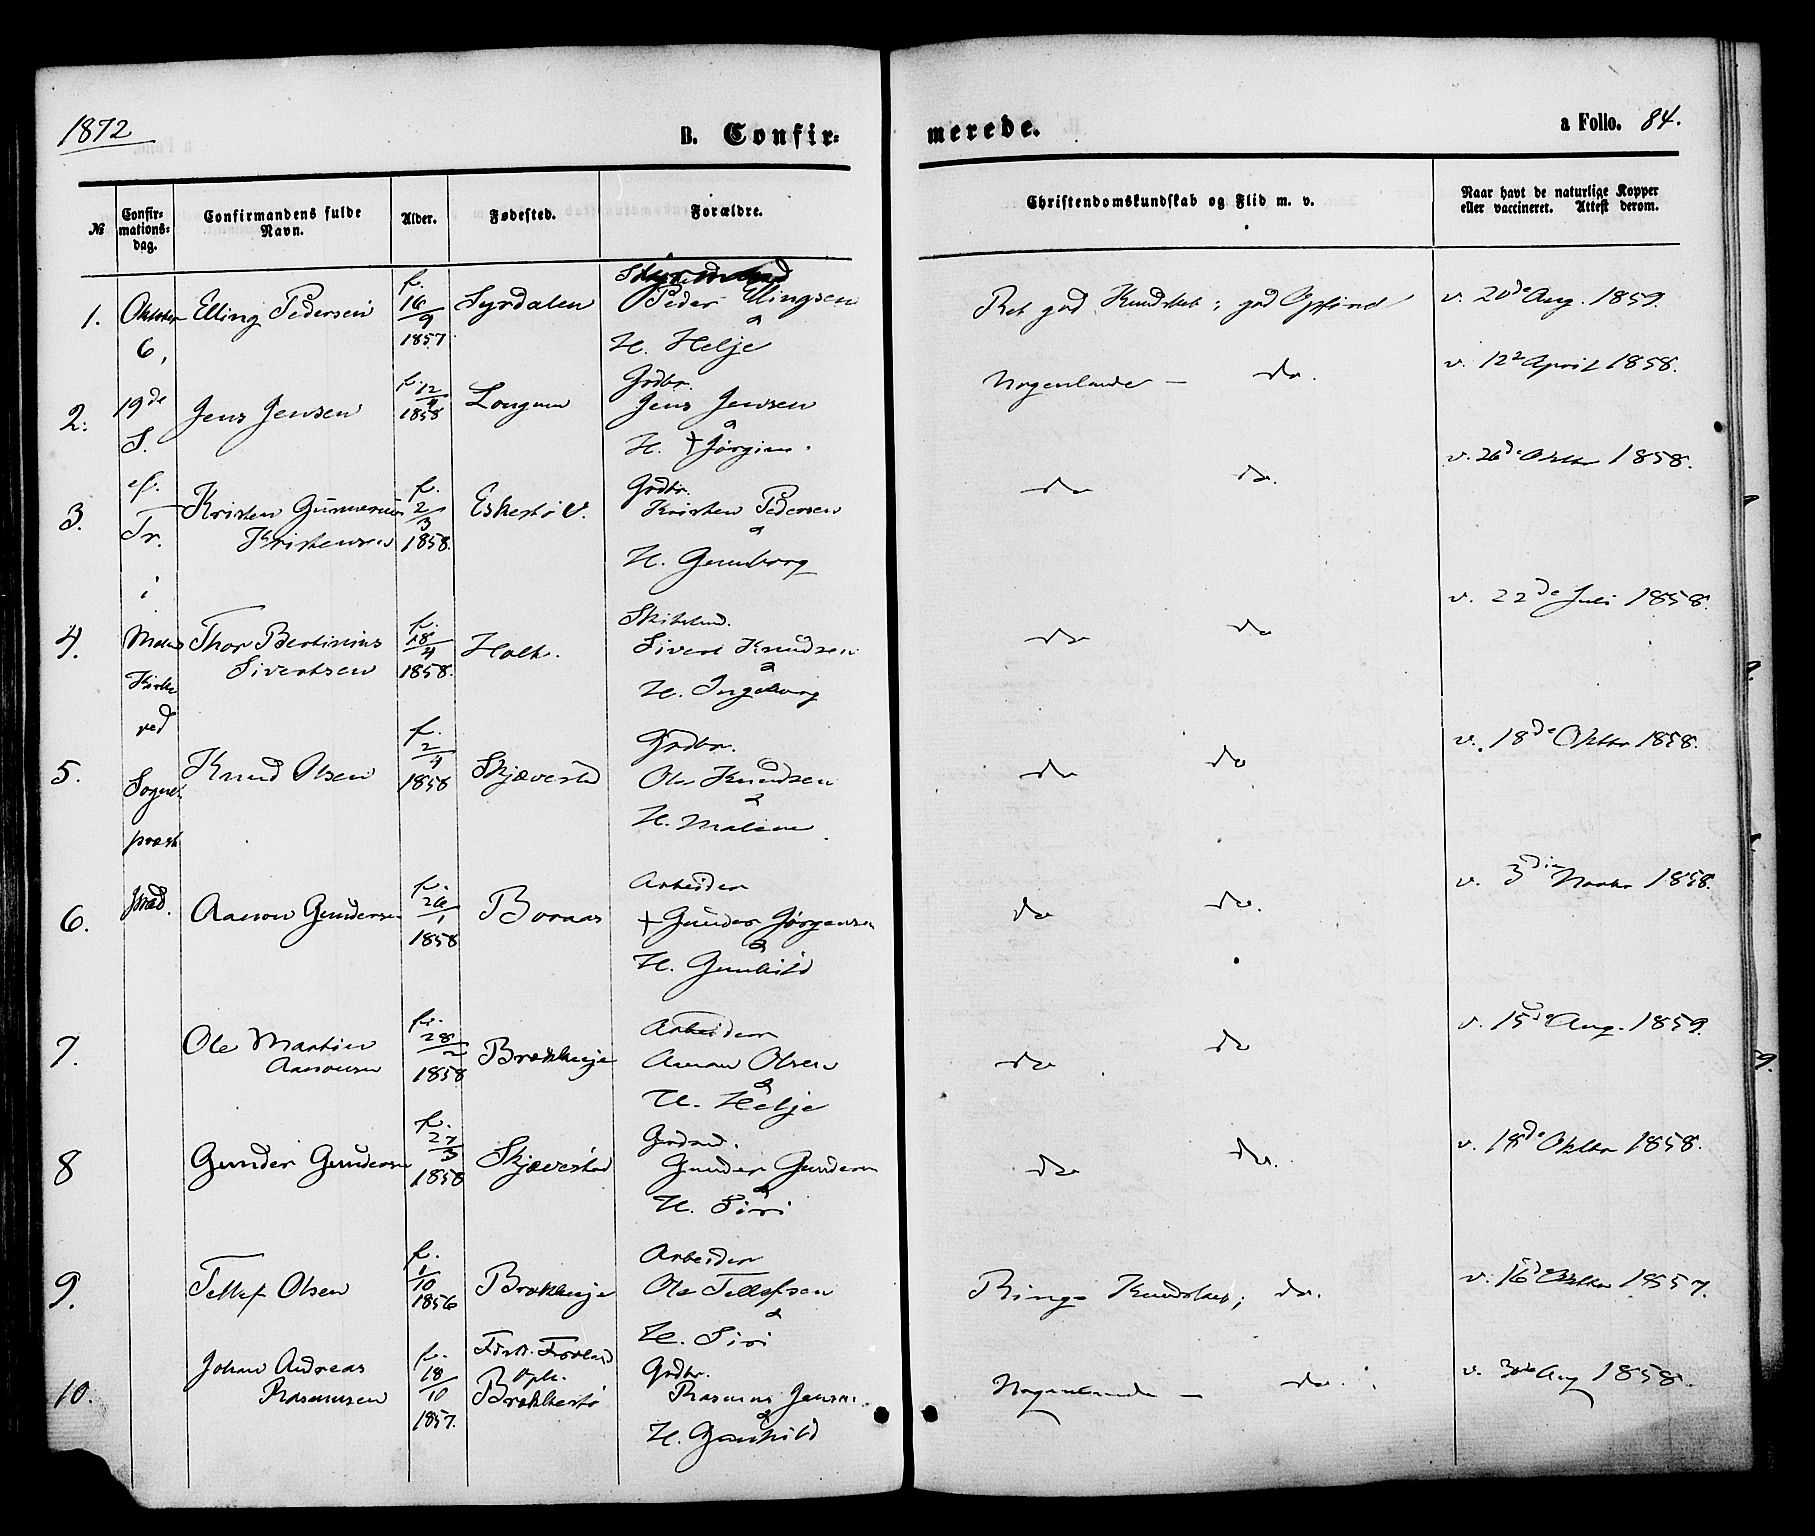 1872
B. Confir-
merede.
a Folio. 84.
№
Confir-
mations-
dag.
Confirmandens fulde
Navn.
Alder.
Fødested.
Forældre.
Christendomskundskab og Flid m. v.
Naar havt de naturlige Kopper
eller vaccineret. Attest derom.
Oktober
6,
19de
S.
ef.
Tr.
i
Kirke
ved
Sogne-
præst
1.
Elling Pedersen
f.
16/9
1857
Syrdalen
Peder Ellingsen
&
H. Helje
Ret god Kundskab; god Opførsel
v. 20de Aug. 1859.
2.
Jens Jensen
f. 12/4
1858
Longum
Grdbr.
Jens Jensen
&
H. + Jørgine.
Nogenlunde — do.
v. 12te April 1858.
3.
Kristen Gunnerius
Kristensen
f.
2/3
1858.
Grdbr.
Kristen Pedersen
&
H. Gunborg
do do.
v. 26de Oktbr 1858.
4.
Thor Bertinius
Sivertsen
f.
18/4
1858.
Holt.
Sivert Knudsen
&
H. Ingeborg
do do
v. 22de Juli 1858.
5.
Knud Olsen
f.
2/4
1858
Skjævestad
Grdbr.
Ole Knudsen
&
H. Maline
do do
v. 18de Oktbr 1858.
6.
Aanon Gundersen
f.
26/1
1858
Boraas
Arbeider
+ Gunder Jørgensen
&
H. Gunhild
do do.
v. 3die Novbr 1858.
7.
Ole Martin
Aanonsen
f.
28/2
1858
Brækkeje
Arbeider
Aanon Olsen
&
H. Helje
do do
v. 15de Aug. 1859.
8
Gunder Gundersen
f.
27/3
1858
Skjævestad
Gunder Gundersen
&
H. Siri
do do.
v. 18de Oktbr 1858.
9.
Tellef Olsen
f.
1/10
1856
Brækkeje
Arbeider
Ole Tellefsen
&
H. Siri
Ringe Kundskab; do.
v. 16de Oktbr 1857.
10.
Johan Andreas
Rasmusen
f.
18/10
1857.
Brækkestø
Grdbr.
Rasmus Jensen
&
H. Gunhild
Nogenlunde — do.
v. 30te Aug 1858.